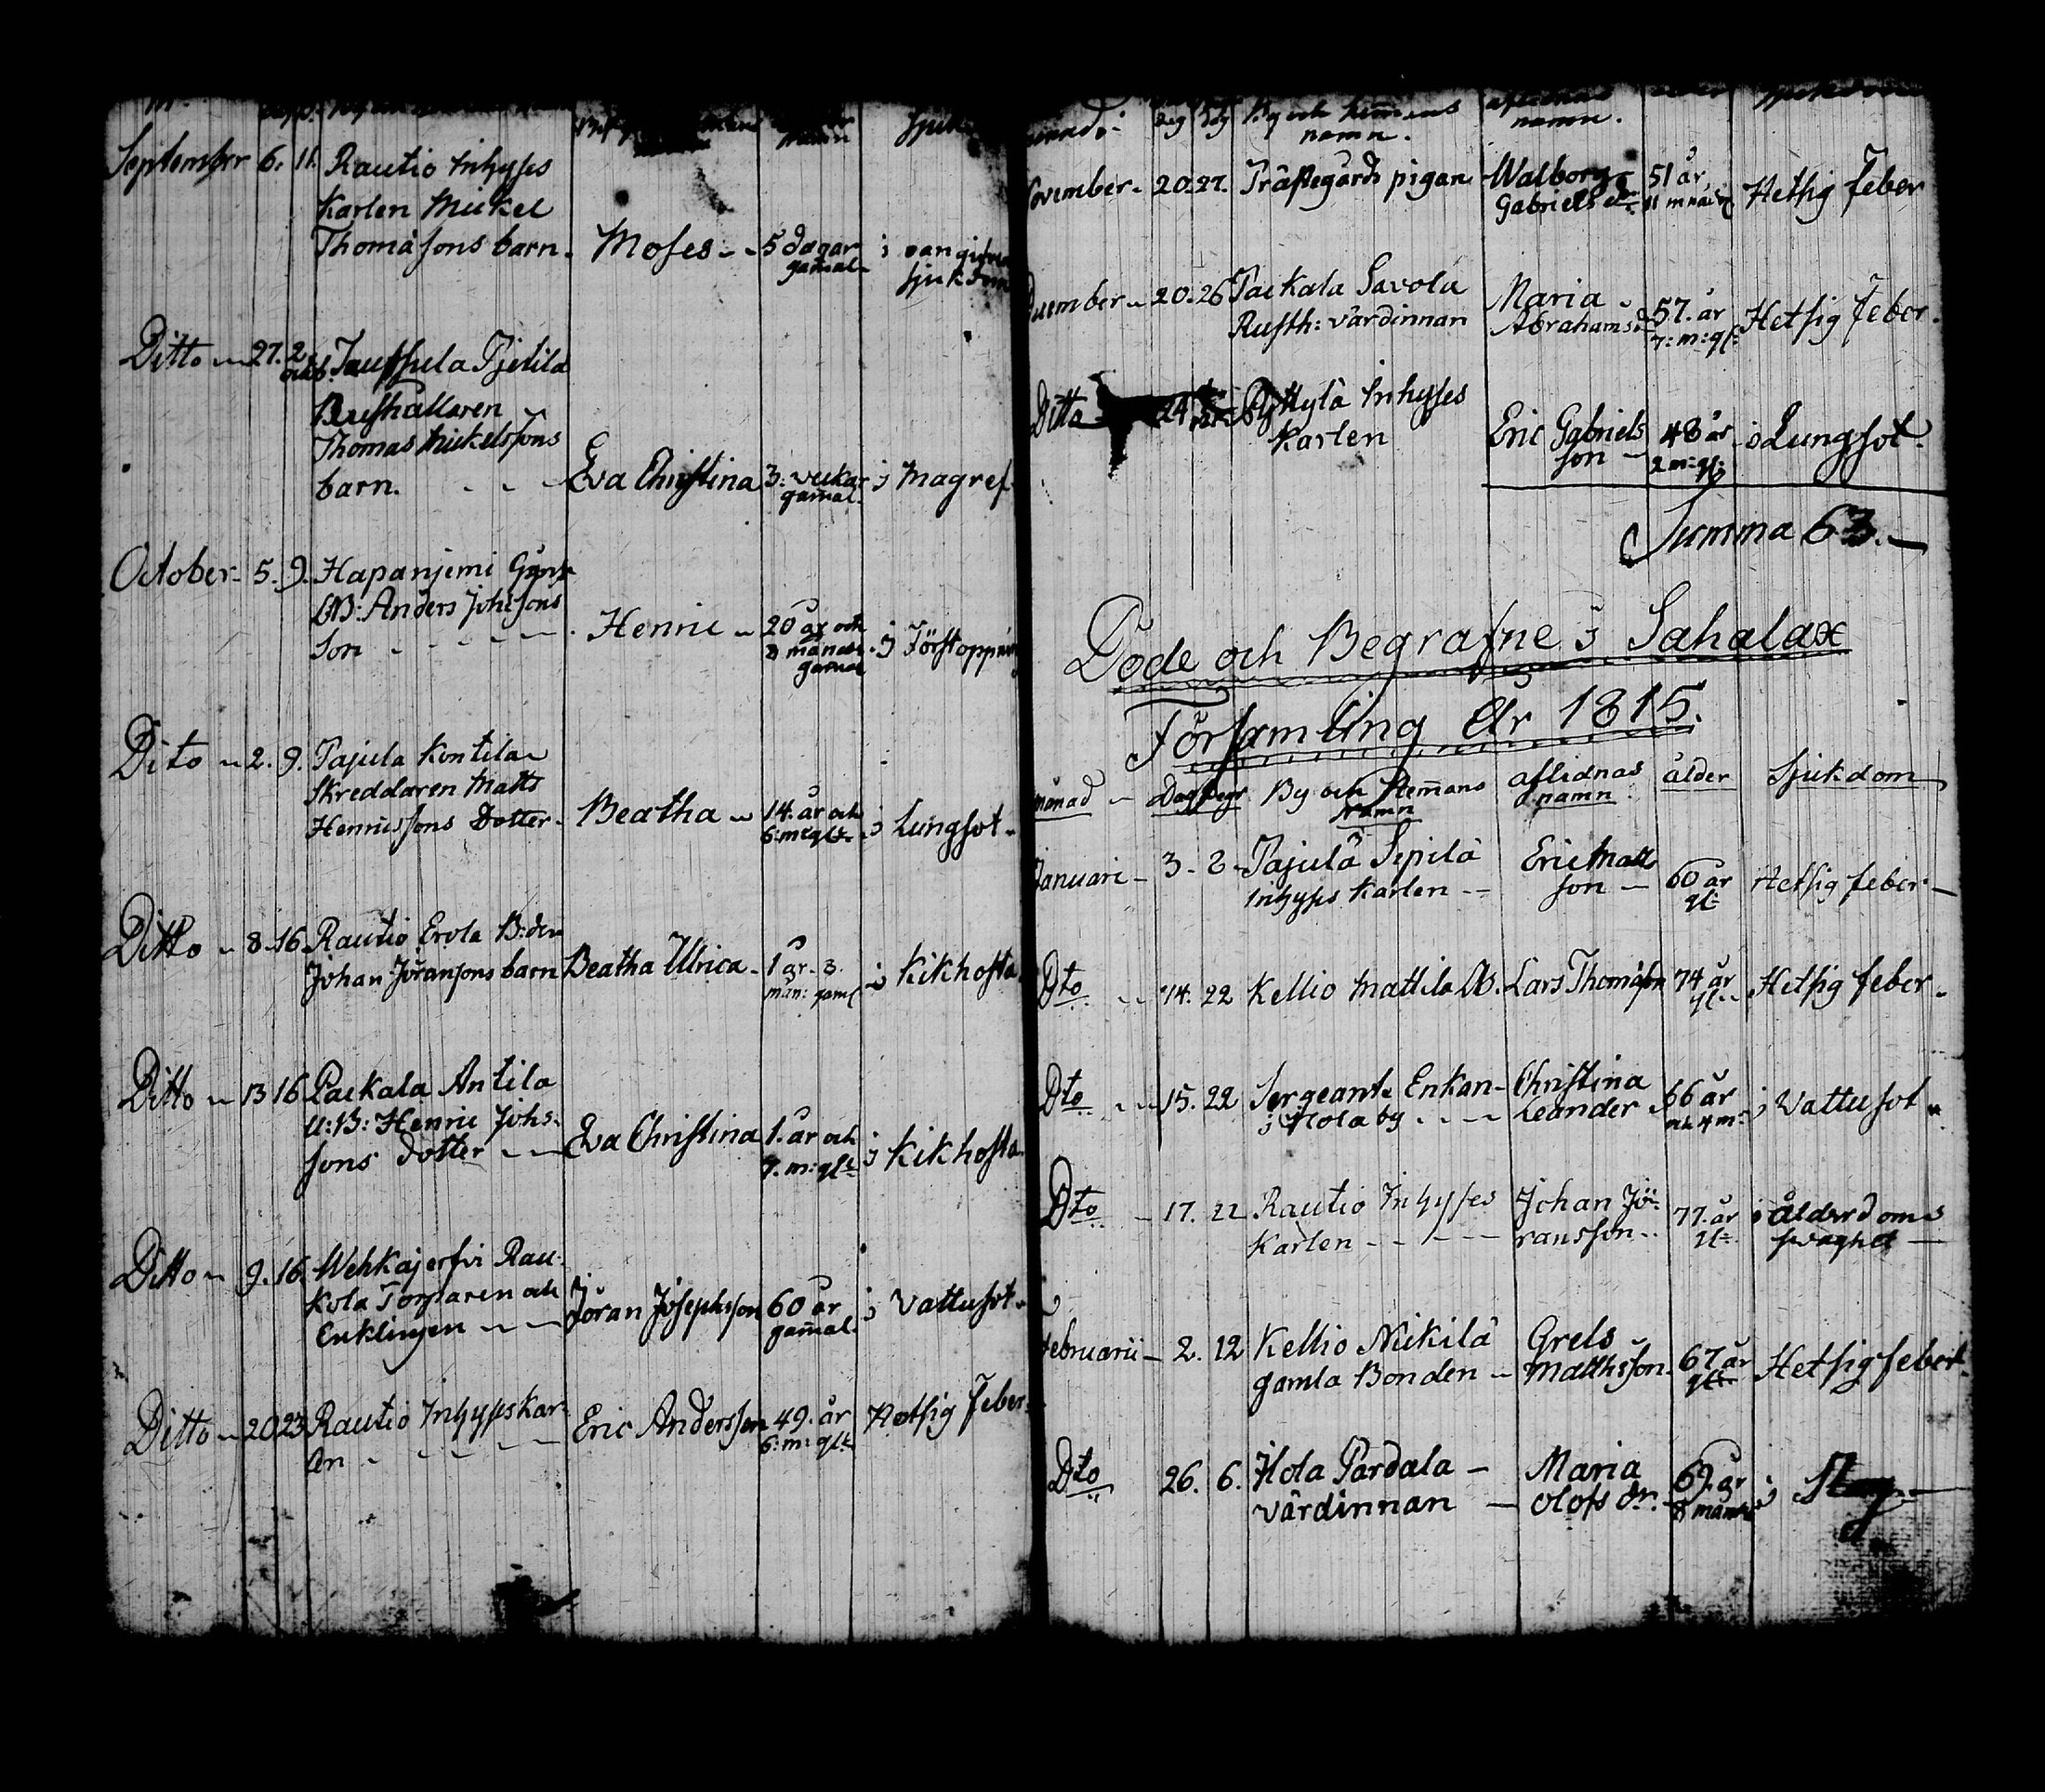 September 6. 11. Rautio Inhyses
Karlen Mickel
Thomæsons barn. Moses 5 dagar gamal i oangifven sjukdom
Ditto 27. 2 octob. Jaussula Pjetilä
Rusthållaren
Thomas Mickelssons
barn. Eva Christina 3: veckor gamal i Magref
October 5. 9. Hapanjemi
Anders Johssons
Son Henric 20 år och månader gamal i Förstoppning
Dito 2. 9. Pajula Kontila
Skreddaren Matts
Henricssons Dotter Beatha 14. år och 6: m: glt i Lungsot
Ditto 8 16 Rautio Erola B:den
Johan Jöransons barn Beatha Ulrica 1 år 3 mån: gaml i Kikhosta
Ditto 13 16 Packala Antila
U:B: Henric Johs:
sons dotter Eva Christina 1. år och 7. m: glt i Kikhosta
Ditto 9. 16. Wehkajerfvi Rau-
kola Torparen och
Enklingen Jöran Josephsson 60 år gamal i Vattusot
Ditto 20 23 Rautio Inhysskar-
len Eric Andersson 49. år 6: m: glt Hetsig feber
Dag By och hemmans namn. aflidnas namn.
November 20. 27. Prästegårds pigan Walborg Gabriels dr 51 år 11 månad Hetsig feber
December 20. 26 Packala Savola
Rusth: värdinnan Maria Abrahamsd: 57. år 7: m: gl: Hetsig feber.
Ditto 24 Pyttylä Inhyses
Karlen Eric Gabriels son 48 år 2 m: gl: i Lungsot.
Summa 63.
Döde och Begrafne i Sahalax
Församling År 1815.
Månad Dag Begr By och Hemans Namn aflidnas namn ålder Sjukdom
Januari 3 8 Pajulä Sipilä
Inhyses Karlen Eric Matts son 60 år gl: Hetsig feber
Dto 14. 22 Kellio Mattila B. Lars Thomasson 74 år gl: Hetsig feber
Dto 15. 22 Sergeants Enkan Christina
i Hola by Leander 66 år 4 m: i Vattusot
Dto 17. 22 Rautio Inhyses Johan Jö-
Karlen ransson 77. år gl: i Ålderdoms svaghet
Februarii 2. 12 Kellio Nickilä Grels
gamla Bonden Matthsson 67 år glt Hetsig feber
Dto 26. 6. Hola Pardala Maria
värdinnan Olofs dr. år 8 månad i